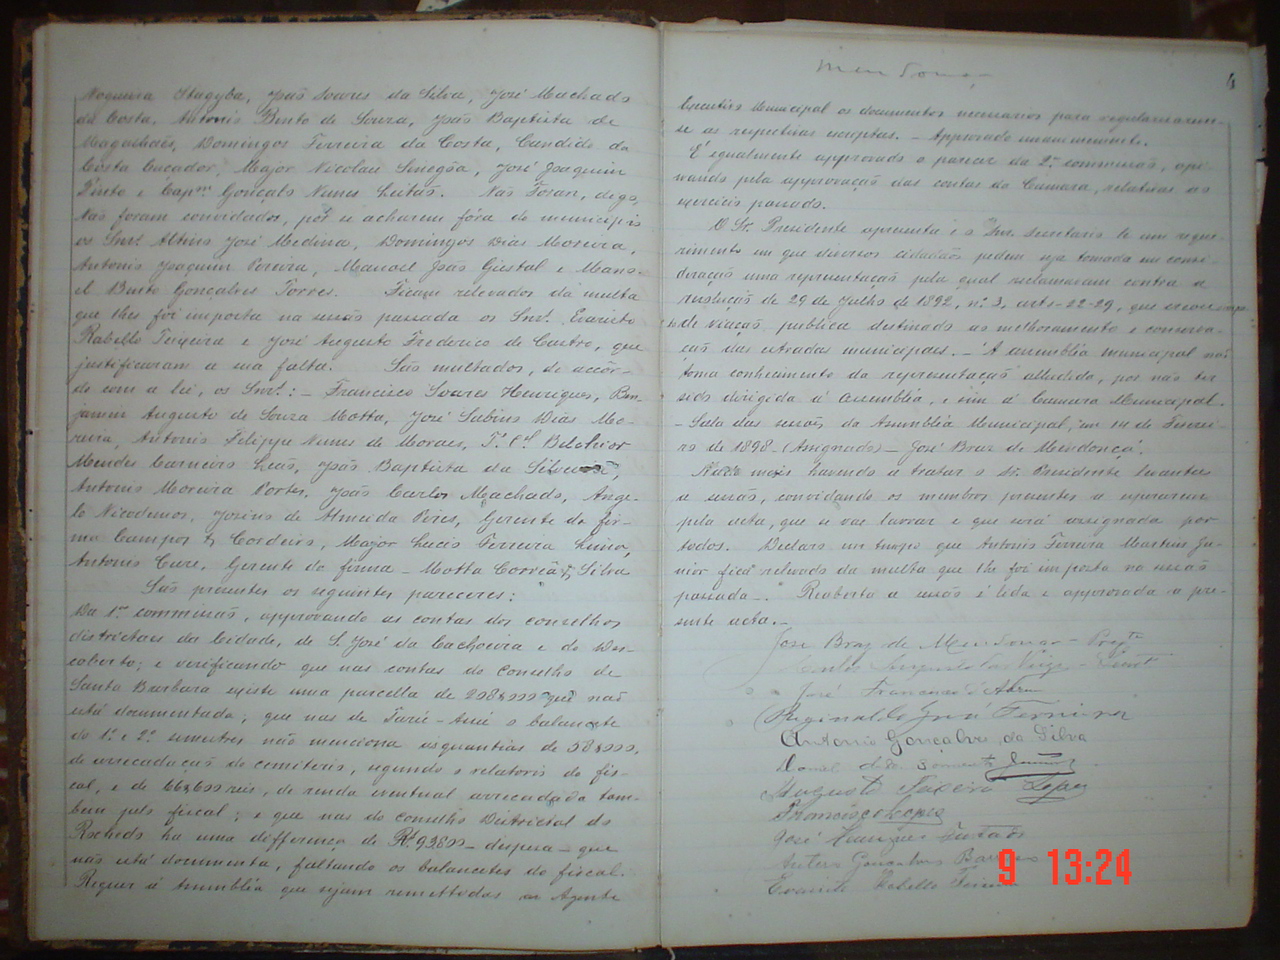 Nogueira Itagyba, João Soares da Silva, José Machado
da Costa, Antonio Bento de Souza, João Baptista de
Magalhães, Domingos Ferreira da Costa, Candido da
Costa Caçador, Major Nicolau Sinegão, José Joaquim
Pinto e Capm. Gonçalo Nunes Leitão. Não Foram, digo,
Não foram convidados, por se acharem fóra do municipio
os Snrs. Altino José Medina, Domingos Dias Moreira,
Antonio Joaquim Pereira, Manoel João Gustal e Mano-
el Bento Gonçalves Torres. Ficam relevados da multa
que lhes foi imposta na sessão passada os Snrs. Evaristo
Rabello Teixeira e José Augusto Frederico de Castro, que
justificaram a sua falta. São multados, de accor-
do com a lei, os Snrs.: - Francisco Soares Henriques, Ben-
jamin Augusto de Souza Motta, José Sabino Dias Mo-
reira, Antonio Filippe Nunes de Moraes, T. Cel. Belchior
Mendes Carneiro Leão, João Baptista da Silveira,
Antonio Moreira Portes, João Carlos Machado, Ange-
lo Nicodemos, Josino de Almeida Pires, Gerente da fir-
ma Campos & Cordeiro, Major Lucio Ferreira Lima,
Antonio Cure, Gerente da firma - Motta Corrêa & Silva
São presentes os seguintes pareceres:
Da 1ª commissão, approvando as contas dos conselhos
districtaes da Cidade, de S. José da Cachoeira e do Des-
coberto; e verificando que nas contas do conselho de
Santa Barbara existe uma parcella de 298$000 que não
está documentada; que nas de Tarú-Assú o balancete
do 1º e 2º semestres não menciona as quantias de 58$000,
de arrecadação do cemiterio, segundo o relatorio do fis-
cal, e de 66$600 reis, de renda eventual arrecadada tam-
bem pelo fiscal; e que nas do conselho Districtal do
Rochedo ha uma differença de Rs. 93800 - despesa - que
não está documenta, faltando os balancetes do fiscal.
Requer á Assembléa que sejam remettidos ao Agente
4
Executivo Municipal os documentos necessarios para regularisarem-
se as respectivas escriptas. - Approvado unanimemente.
É egualmente approvado o parecer da 2ª commissão, opi-
nando pela approvação das contas da Camara, relativas ao
exercicio passado.
O Sr. Presidente apresenta e o Snr. Secretario lê um reque-
rimento em que diversos cidadãos pedem seja tomada em consi-
deração uma representação pela qual reclamaram contra a
resolução de 29 de Julho de 1892, nº 3, arts. 22-29, que creou imposto
de viação publica destinado ao melhoramento e conserva-
ção das estradas municipaes. - A assembléa municipal não
toma conhecimento da representação alludida, por não ter
sido dirigida á Assembléa, e sim á Camara Municipal.
- Sala das sessões da Assembléa Municipal, em 14 de Feverei-
ro de 1898. (Assignado) - José Braz de Mendonça.
Nada mais havendo a tratar o Sr. Presidente levantou
a sessão, convidando os membros presentes a esperarem
pela acta, que se vae lavrar e que será assignada por
todos. Declaro em tempo que Antonio Ferreira Martins Ju-
nior fica relevado da multa que lhe foi imposta na sessão
passada. Reaberta a sessão é lida e approvada a pre-
sente acta. -
José Braz de Mendonça - Preste
José Francisco d'Abreu
Reginaldo José Ferreira
Antonio Gonçalves da Silva
Augusto Teixeira Lopes
Francisco Lopes
José Henrique Furtado
Antero Gonçalves
Evaristo Rabello Teixeira
9 13:24